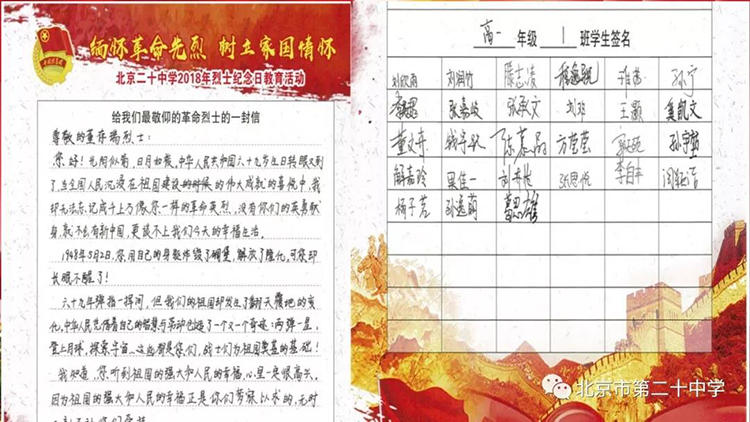 缅怀革命先烈 树立家国情怀
北京二十中学2018年烈士纪念日教育活动
给我们最敬仰的革命烈士的一封信
尊敬的董存瑞烈士：
您好！光阴似箭，日月如梭，中华人民共和国六十九岁生日转眼又到
了，当全国人民沉浸在祖国建设的伟大成就的喜悦中，我
却无法忘记成千上万像您一样的革命英烈，没有你们的英勇献
身，就不会有新中国，更谈不上我们今天的幸福生活。
1948年5月2日，您用自己的身躯炸毁了碉堡，解放了隆化，可您却
长眠不醒了！
六十九年弹指一挥间，但我们的祖国却发生了翻天覆地的变
化，中华人民凭借着自己的智慧与劳动创造了一个又一个奇迹：两弹一星，
登上月球，探索宇宙……这些都是你们，战士们为祖国奠基的基础！
我知道，您听到祖国的强大和人民的幸福，心里一定很高兴，
因为祖国的强大和人民的幸福正是你们梦寐以求的，无时
高一 年级 1 班学生签名
刘欣雨 刘润竹 滕志凌 孙宁
张嘉峻 张承文 刘非 王灏 集凯文
董文卉 钱宇欣 陈慕晶 方莹莹 孙宇莹
解嘉玲 果佳一 刘卉怡 张恩悦 李自丰
杨子莹 孙逸萌 葛思雄
北京市第二十中学